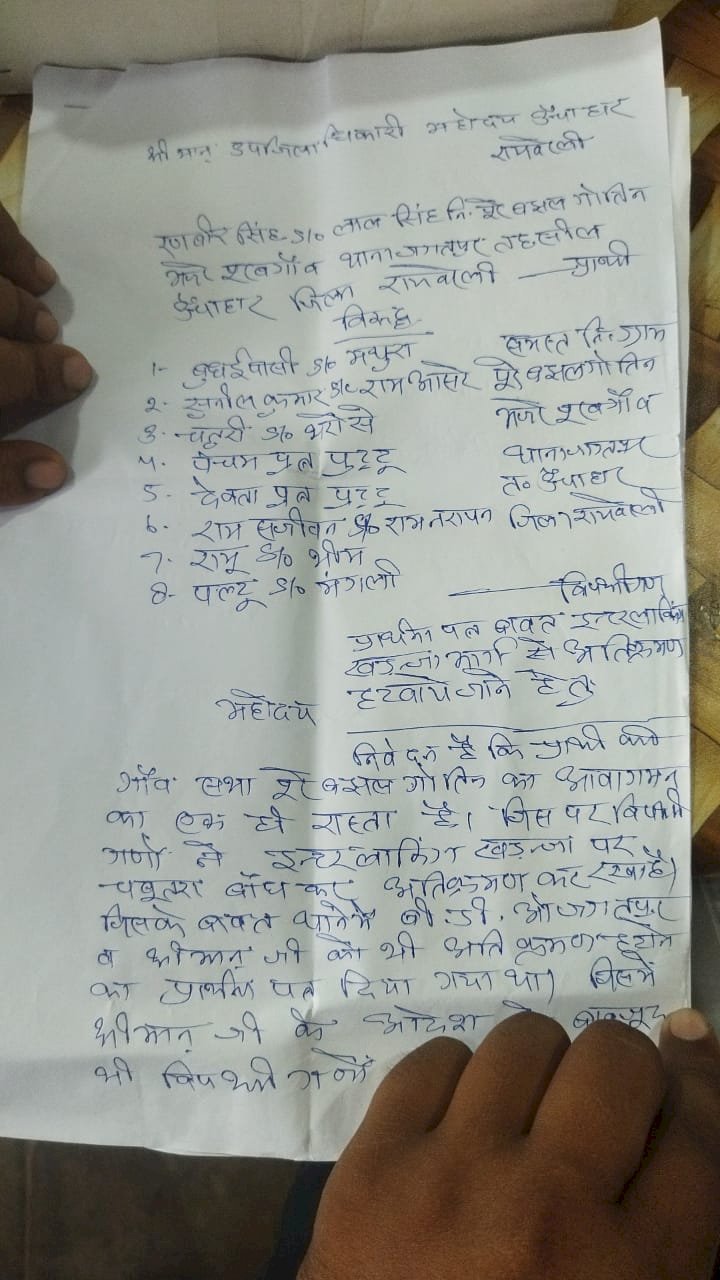 श्रीमान् उपजिलाधिकारी महोदय ऊँचाहार
रायबरेली
रणवीर सिंह S/o लाल सिंह नि. पूरे बझल गोतिन
मजरे थाना जगतपुर तहसील
ऊँचाहार जिला रायबरेली — प्रार्थी
विरुद्ध
1- बुधई पासी S/o मथुरा समस्त नि. ग्राम
2- सुनील कुमार S/o राम आसरे पूरे बझल गोतिन
3- चहूरी S/o भरोसे मजरे
4- पंचम पुत्र पुद्दू थाना जगतपुर
5- देवता पुत्र पुद्दू त० ऊँचाहार
6- राम सजीवन S/o राम नरायन जिला रायबरेली
7- रामू S/o भीम
8- पल्टू S/o मंगली — विपक्षीगण
प्रार्थना पत्र बावत इन्टरलाकिंग
खड़न्जा मार्ग से अतिक्रमण
महोदय हटवाये जाने हेतु
निवेदन है कि प्रार्थी की
गाँव सभा पूरे बझल गोतिन का आवागमन
का एक ही रास्ता है। जिस पर विपक्षी
गणों ने इन्टरलाकिंग खड़न्जा पर
चबूतरा बाँध कर अतिक्रमण कर रखा है।
जिसके बावत थाने में बी. डी. ओ जगतपुर
व श्रीमान् जी को भी अतिक्रमण हटाने
का प्रार्थना पत्र दिया गया था। जिसमें
श्रीमान् जी के आदेश के बावजूद
भी विपक्षी गणों